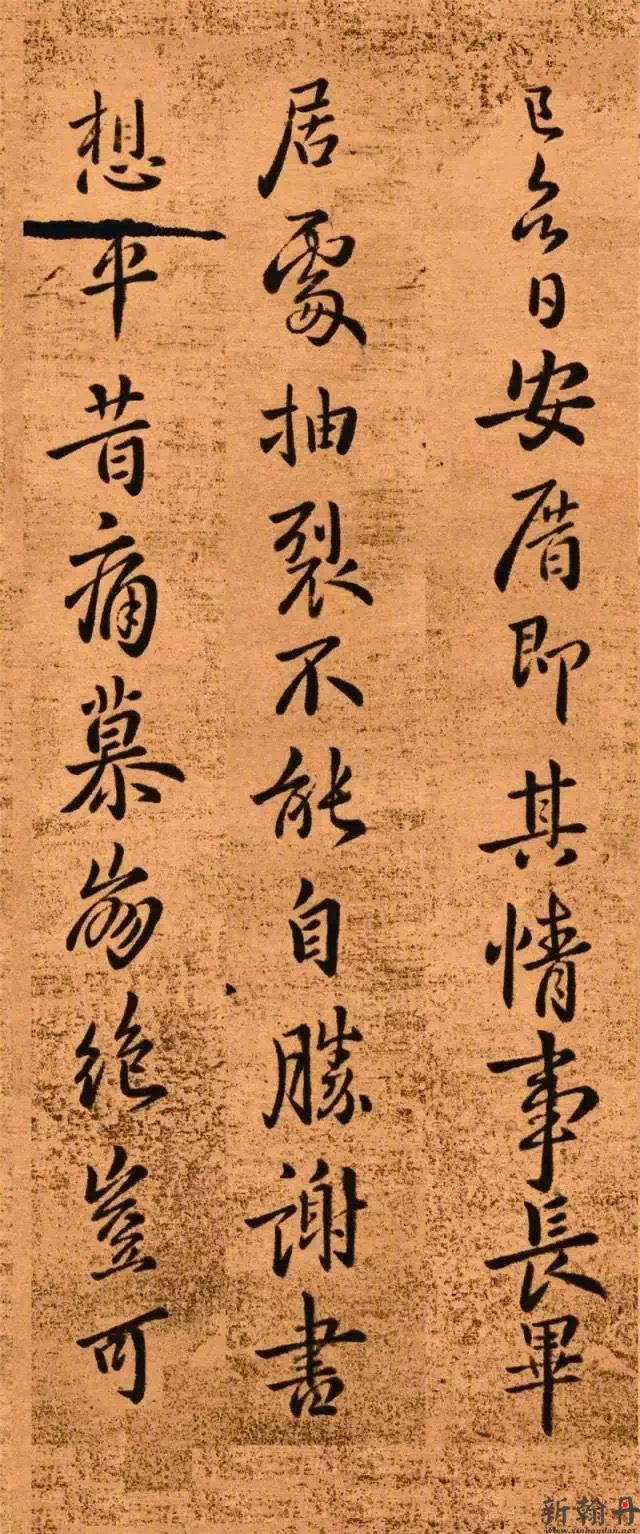 已日安厝即其情事長畢
居處抽裂不能自勝謝書
想平昔痛慕崩絶豈可
新翰丹
www.xinhandan.net